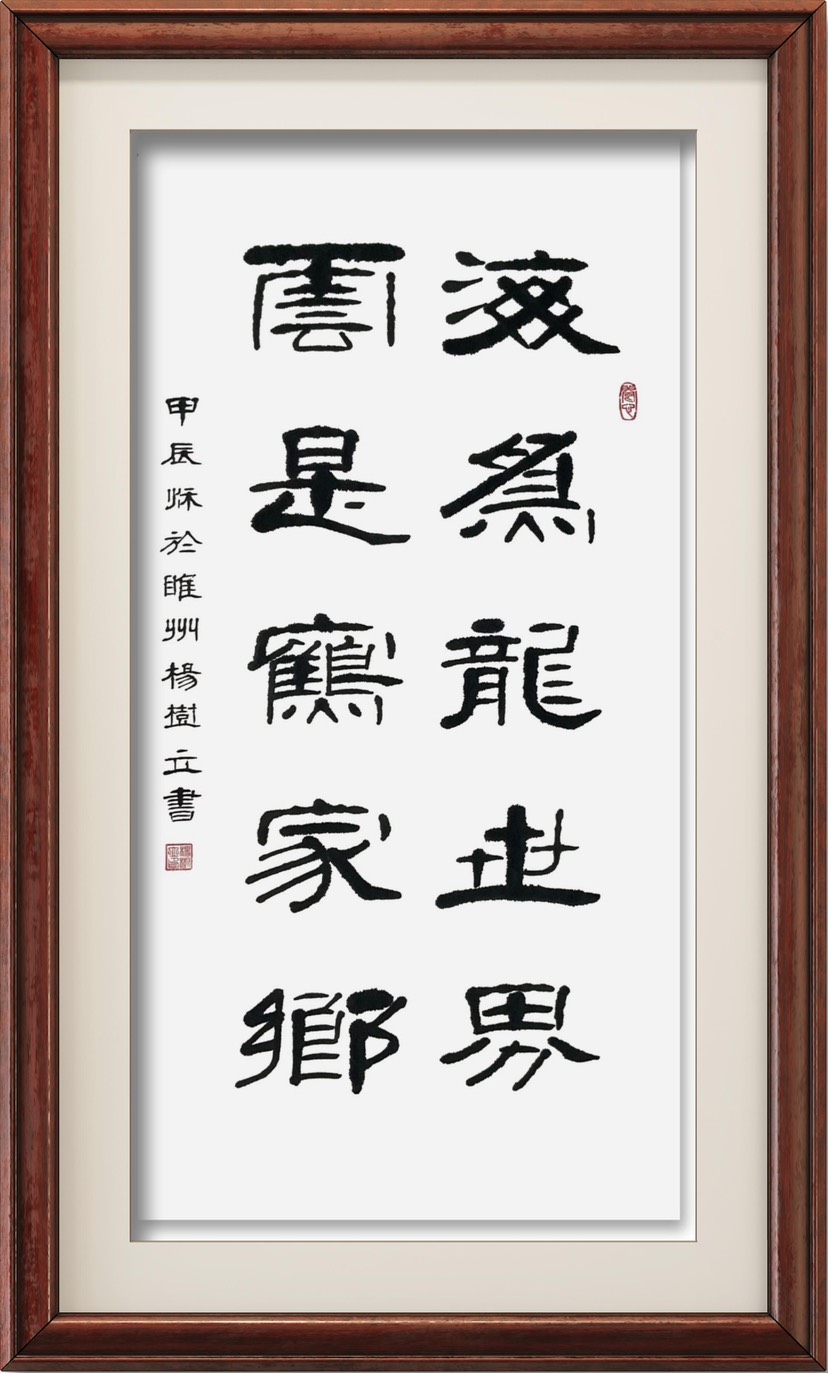 海為龍世界
雲是鶴家鄉
甲辰秌於睢州楊樹立書